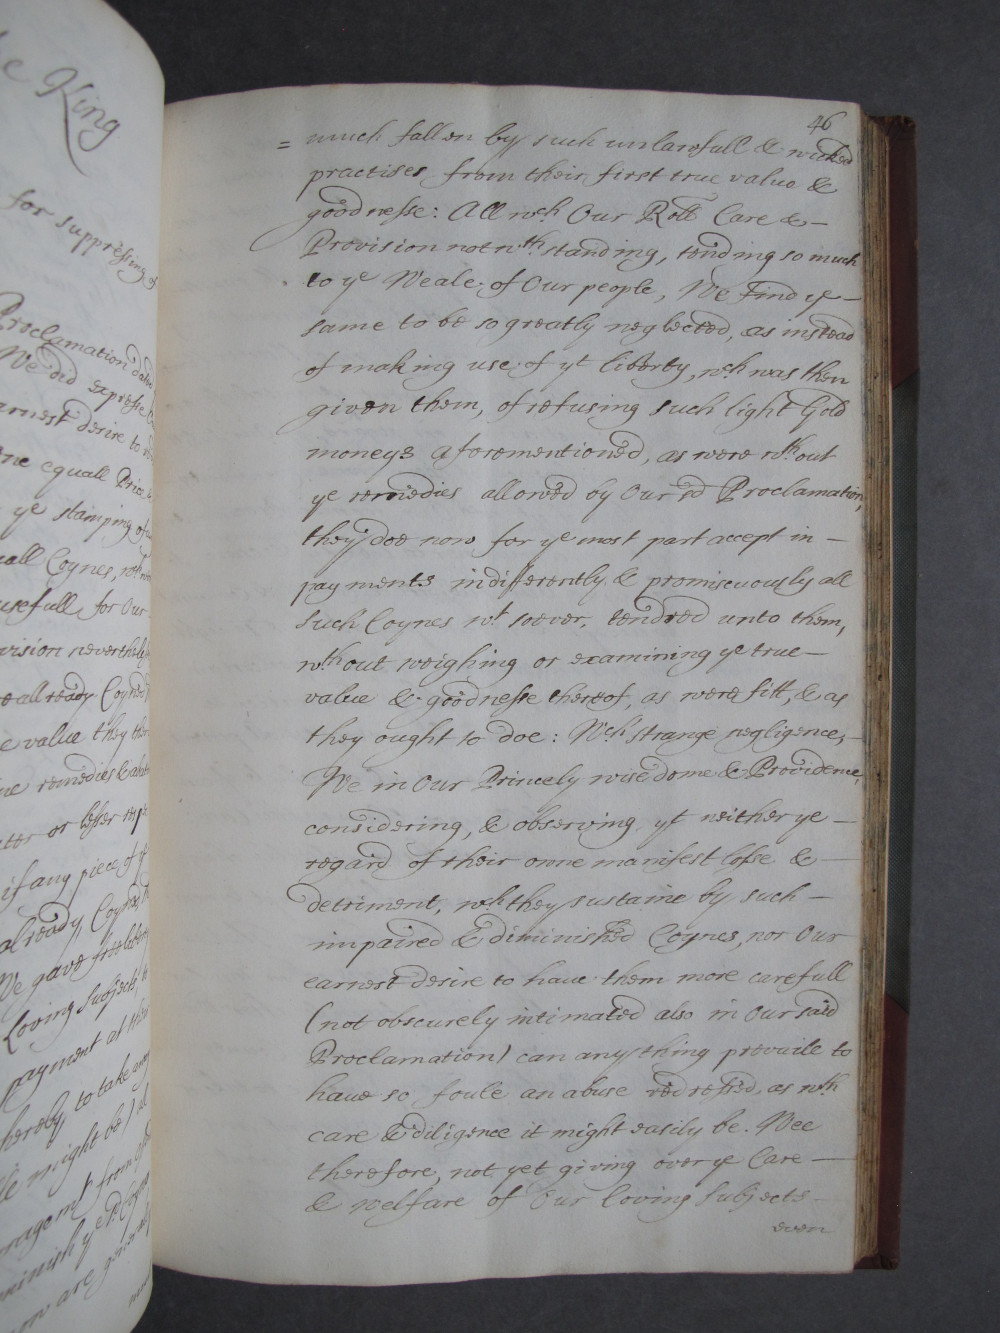 ye King
for suppressing of
Proclamation dated
We did expresse
earnest desire to
one equall Price
ye stamping of
small Coynes, wch
usefull for Our
Provision neverthelesse
allready Coyned
value they then
remedies & abate
or lesser
if any piece of ye
already Coyned,
We gave free liberty
Loving Subjects,
payment at their
hereby, to take any
might be)
from
diminish ye sd Coynes
are
46
= much fallen by such unlawfull & wicked
practises from their first true value &
goodnesse: All wch Our Roll Care & –
Provision notwthstanding, tending so much
to ye Weale of Our people, We find ye –
same to be so greatly neglected, as instead
of making use of yt liberty, wch was then
given them, of refusing such light Gold
moneys aforementioned, as were wthout
ye remedies allowed by Our sd Proclamation,
they doe now for ye most part accept in –
payments indifferently & promiscuously all
such Coynes wt soever, tendred unto them,
wthout weighing or examining ye true –
value & goodnesse thereof, as were fitt, & as
they ought to doe: Wch strange negligence, –
We in Our Princely wisedome & Providence,
considering, & observing yt neither ye –
regard of their owne manifest losse & –
detriment, wch they sustaine by such –
impaired & diminished Coynes, nor Our
earnest desire to have them more carefull
(not obscurely intimated also in Our said
Proclamation) can any thing prevaile to
have so foule an abuse redressed, as wth
care & diligence it might easily be. Wee
therefore, not yet giving over ye Care –
& welfare of Our loving Subjects –
even